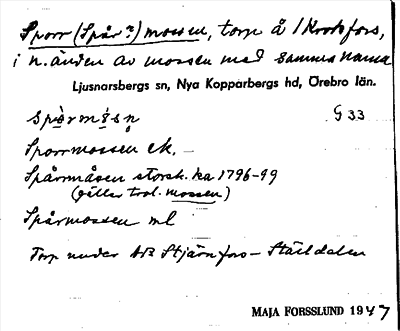 Sporr (Spår?) mossen, torp å 1 Krokfors,
i n. änden av mossen med samma namn
Ljusnarsbergs sn, Nya Kopparbergs hd, Örebro län.
spòrmósn G 33
Sporrmossen ek. –
Spårmåsen storsk. ka 1796–99
(gäller trol. mossen)
Spårmossen ml
Torp under AB Stjärnfors–Ställdalen
MAJA FORSSLUND 1947